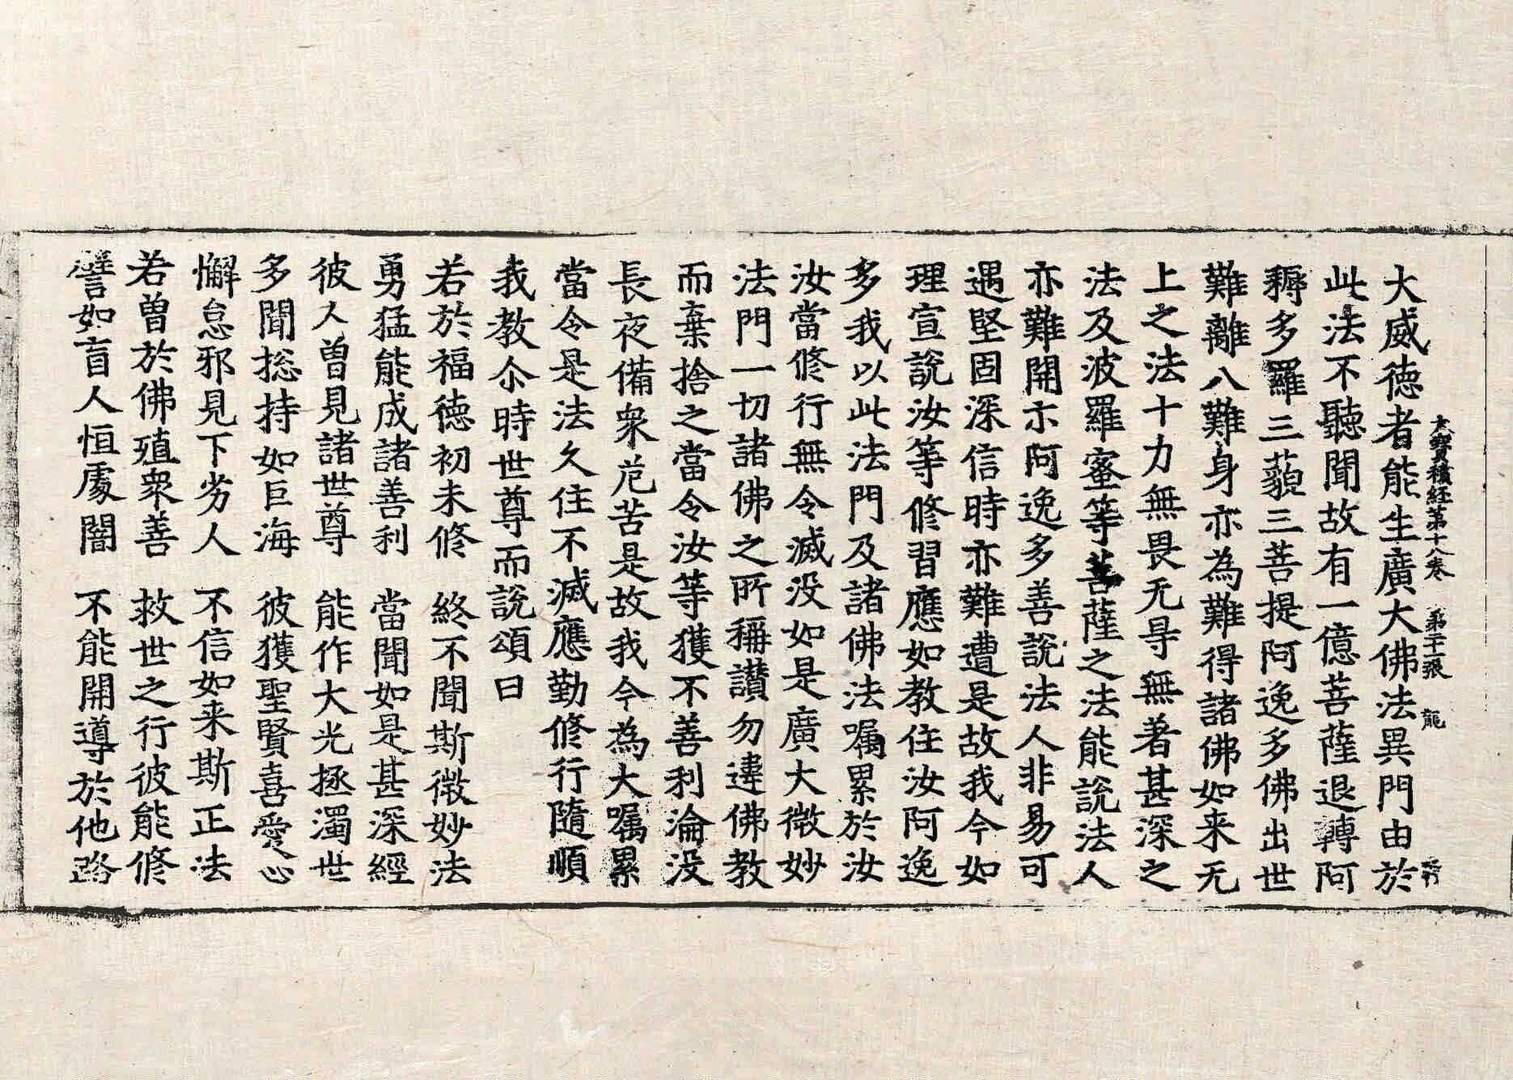 大寶積經第十八卷 第二十一張 龍
大威德者能生廣大佛法異門由於
此法不聽聞故有一億菩薩退轉阿
耨多羅三藐三菩提阿逸多佛出世
難離八難身亦為難得諸佛如来无
上之法十力無畏无㝵無著甚深之
法及波羅蜜等菩薩之法能說法人
亦難開示阿逸多善說法人非易可
遇堅固深信時亦難遭是故我今如
理宣說汝等修習應如教住汝阿逸
多我以此法門及諸佛法囑累於汝
汝當修行無令滅没如是廣大微妙
法門一切諸佛之所稱讃勿違佛教
而棄捨之當令汝等獲不善利淪没
長夜備衆危苦是故我今為大囑累
當令是法久住不滅應勤修行隨順
我教尒時世尊而說頌曰
若於福德初未修 終不聞斯微妙法
勇猛能成諸善利 當聞如是甚深經
彼人曽見諸世尊 能作大光拯濁世
多聞捴持如巨海 彼獲聖賢喜愛心
懈怠邪見下劣人 不信如来斯正法
若曽於佛殖衆善 救世之行彼能修
譬如盲人恒處闇 不能開導於他路